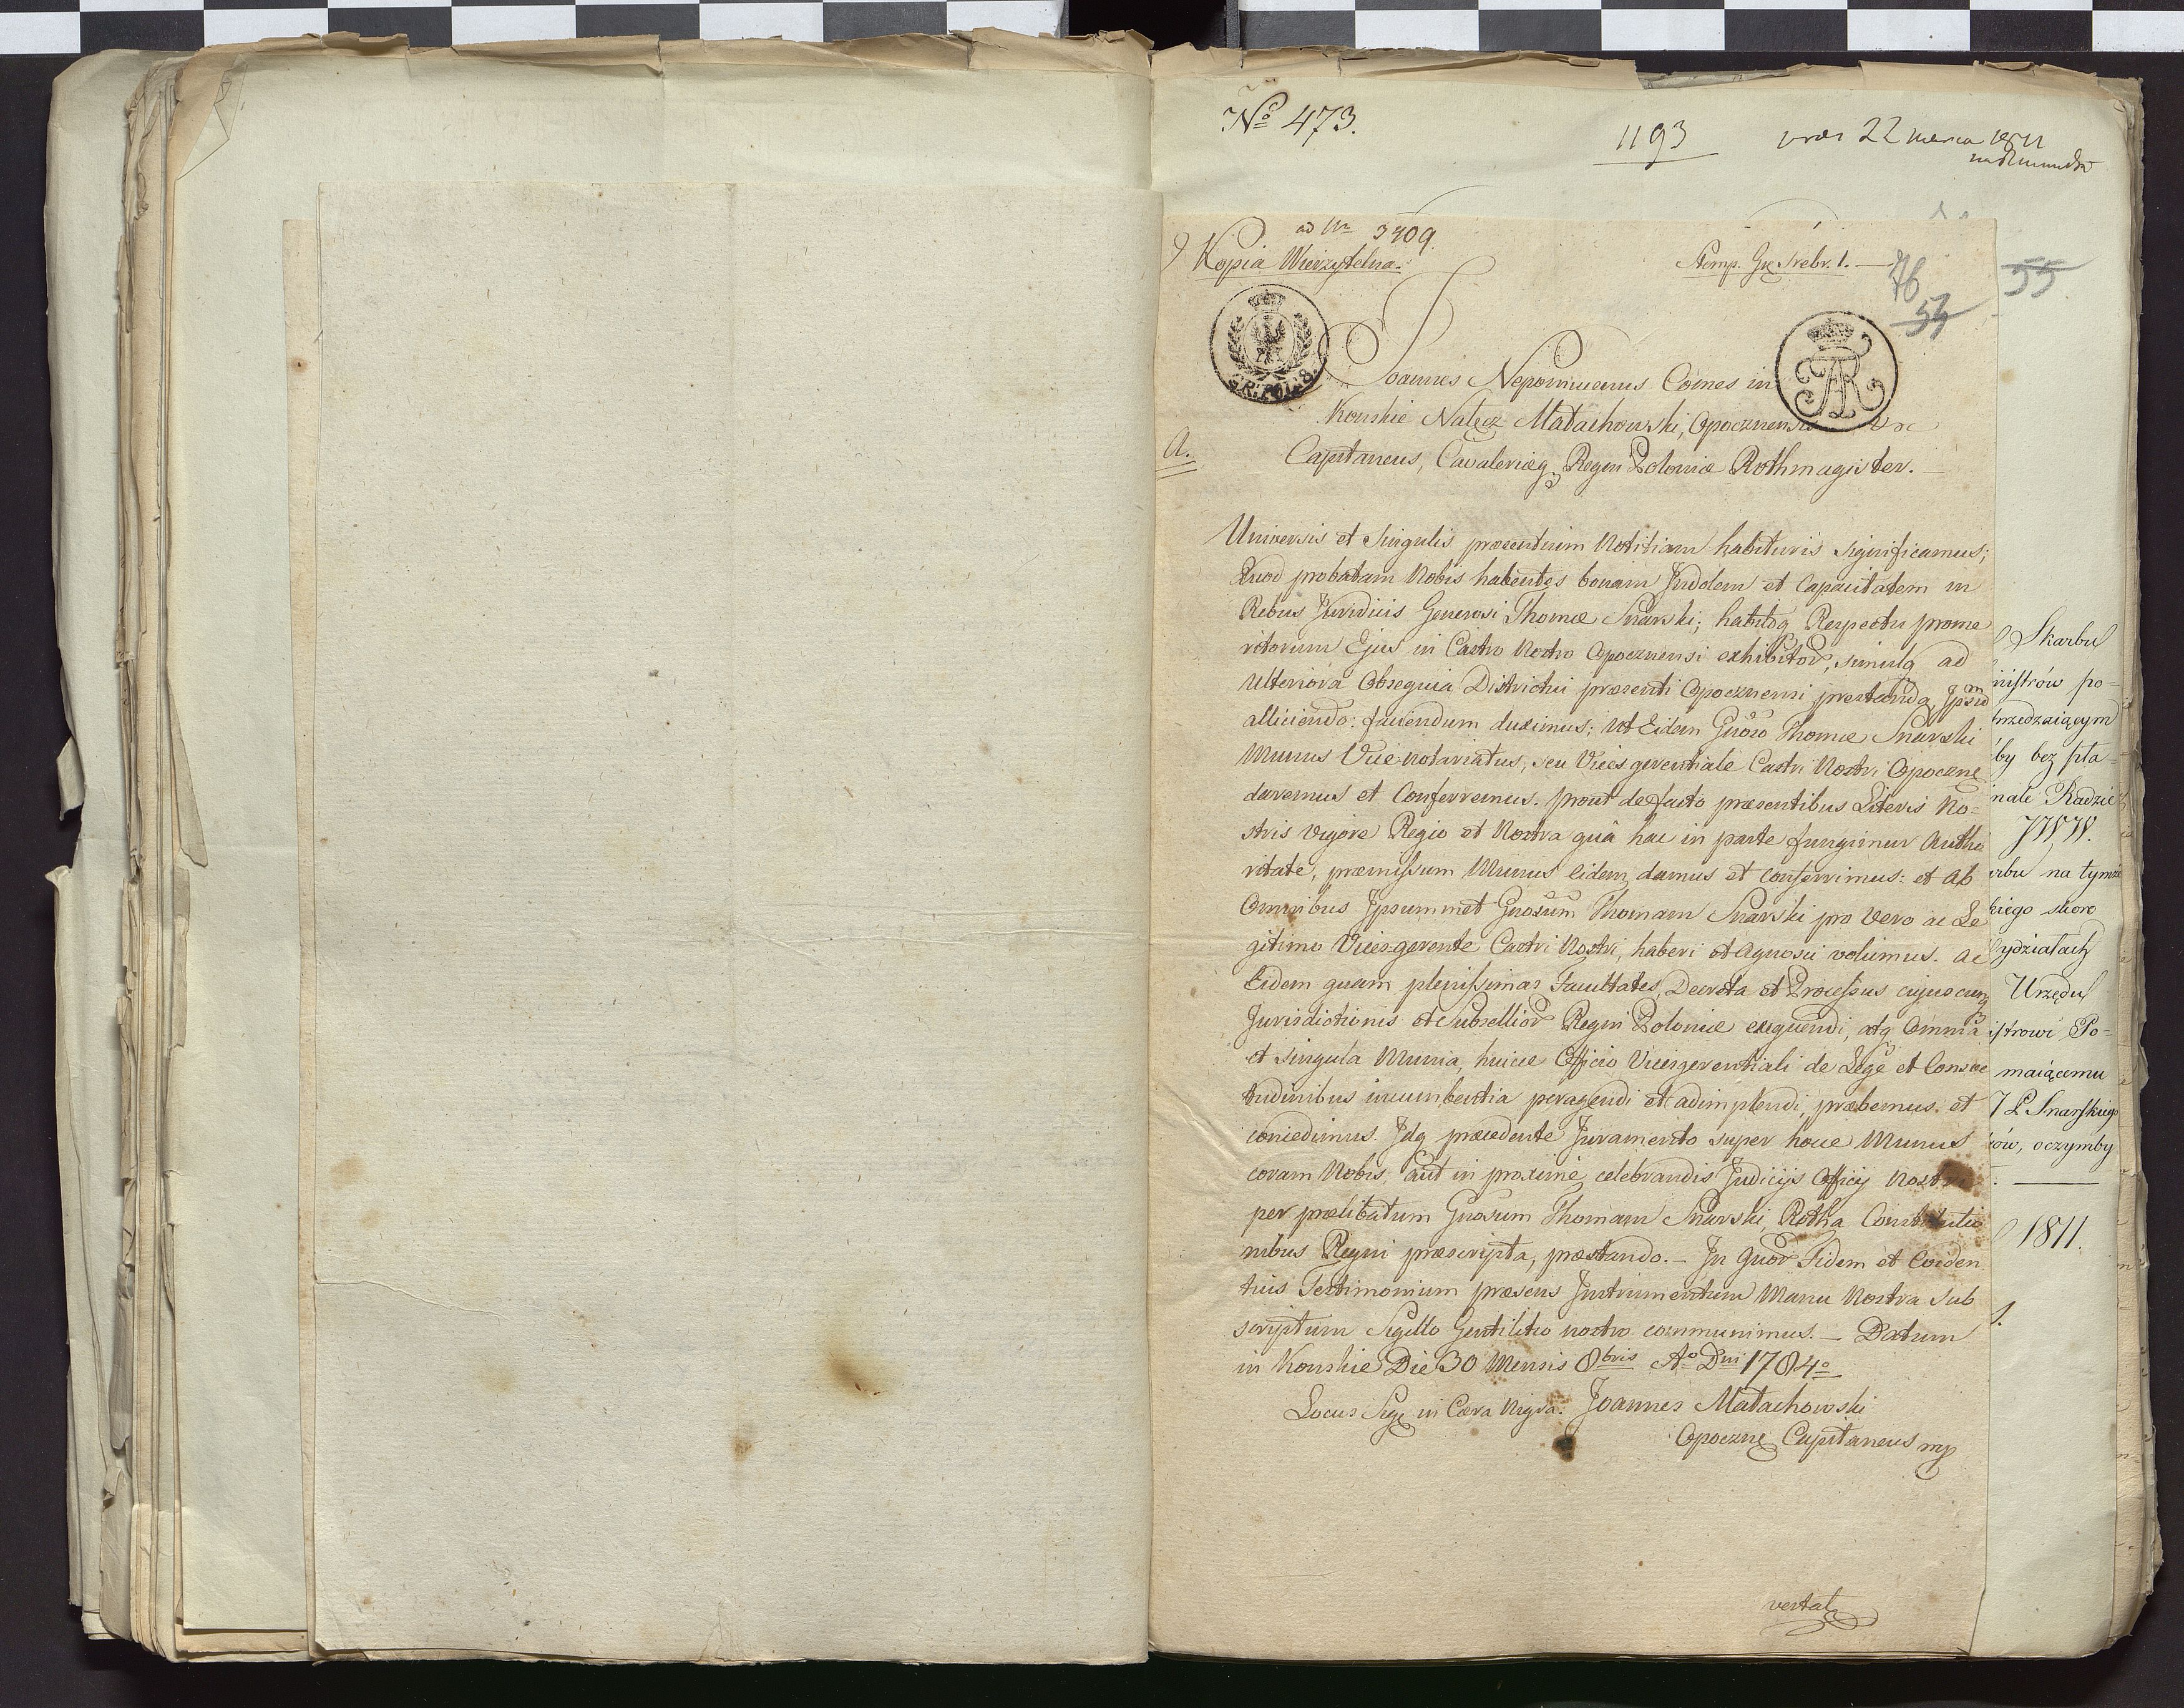 No 473.
1193
22 marca 1811
ad Nr 3409.
Kopia Wierzytelna.
Stemp. Gr. Srebr. 1.
76
53
55
A.
Joannes Nepomucenus Comes in
Konskie Nałęcz Małachowski, Opocznensis
Capitaneus, Cavaleriæq Regni Poloniæ Rothmagister.
Universis et Singulis præsentium Notitiam habituris significamus;
Quod probatam Nobis habentes bonam Indolem et Capacitatem in
Rebus Juridicis Generosi Thomæ Snarski; habitoq Respectu prome
ritorum Ejus in Castro Nostro Opocznensi exhibitor, simulq ad
Ulteriora Obsequia Districtui præsenti Opocznensi prestanda, Ipsum
alliciendo: faciendum duximus; Ut Eidem Gnoso Thomæ Snarski
Munus Vicenotariatus, seu Vices gerentiale Castri Nostri Opoczne
daremus et Conferremus. prout de facto præsentibus Literis No-
stris vigore Regio et Nostra quâ hac in parte fungimur Autho
ritate, præmissum Munus eidem damus et conferrimus: et ab
Omnibus Ipsummet Gnosum Thomam Snarski pro Vero ac Le
gitimo Vices-gerente Castri Nostri, haberi et Agnosci volumus. ac
Eidem quam plenissimas Facultates, Decreta et Processus cujuscunq
Jurisdictionis et Subsellior Regni Poloniæ exequendi, atq Omnia
et singula Munia, huicce Officio Vicesgerentiali de Lege et Consve
tudinibus incumbentia peragendi et adimplendi, præbemus et
concedimus. Idq præcedente Juramento super hocce Munus
coram Nobis, aut in proxime celebrandis Judicijs Officij Nostri
per prælibatum Gnosum Thomam Snarski, Rotha Constitutio
nibus Regni præscripta, præstando. — In quor Fidem et Eviden
tius Testimonium præsens Instrumentum Manu Nostra Sub
scriptum Sigillo Gentilitio nostro communimus. — Datum
in Konskie Die 30 Mensis 8bris Ao Dni 1784o
Locus Sigi in Cera Nigra. Joannes Małachowski
Opoczne Capitaneus mp
vertat
Skarbu
nistrów po-
rzedzaiącym
by bez pła-
nale Radzie
JWW.
rbu na tymże
kiego skoro
ydziałach
Urzędu
istrowi Po-
maiącemu
J P Snarskiego
ów, oczymby
1811.